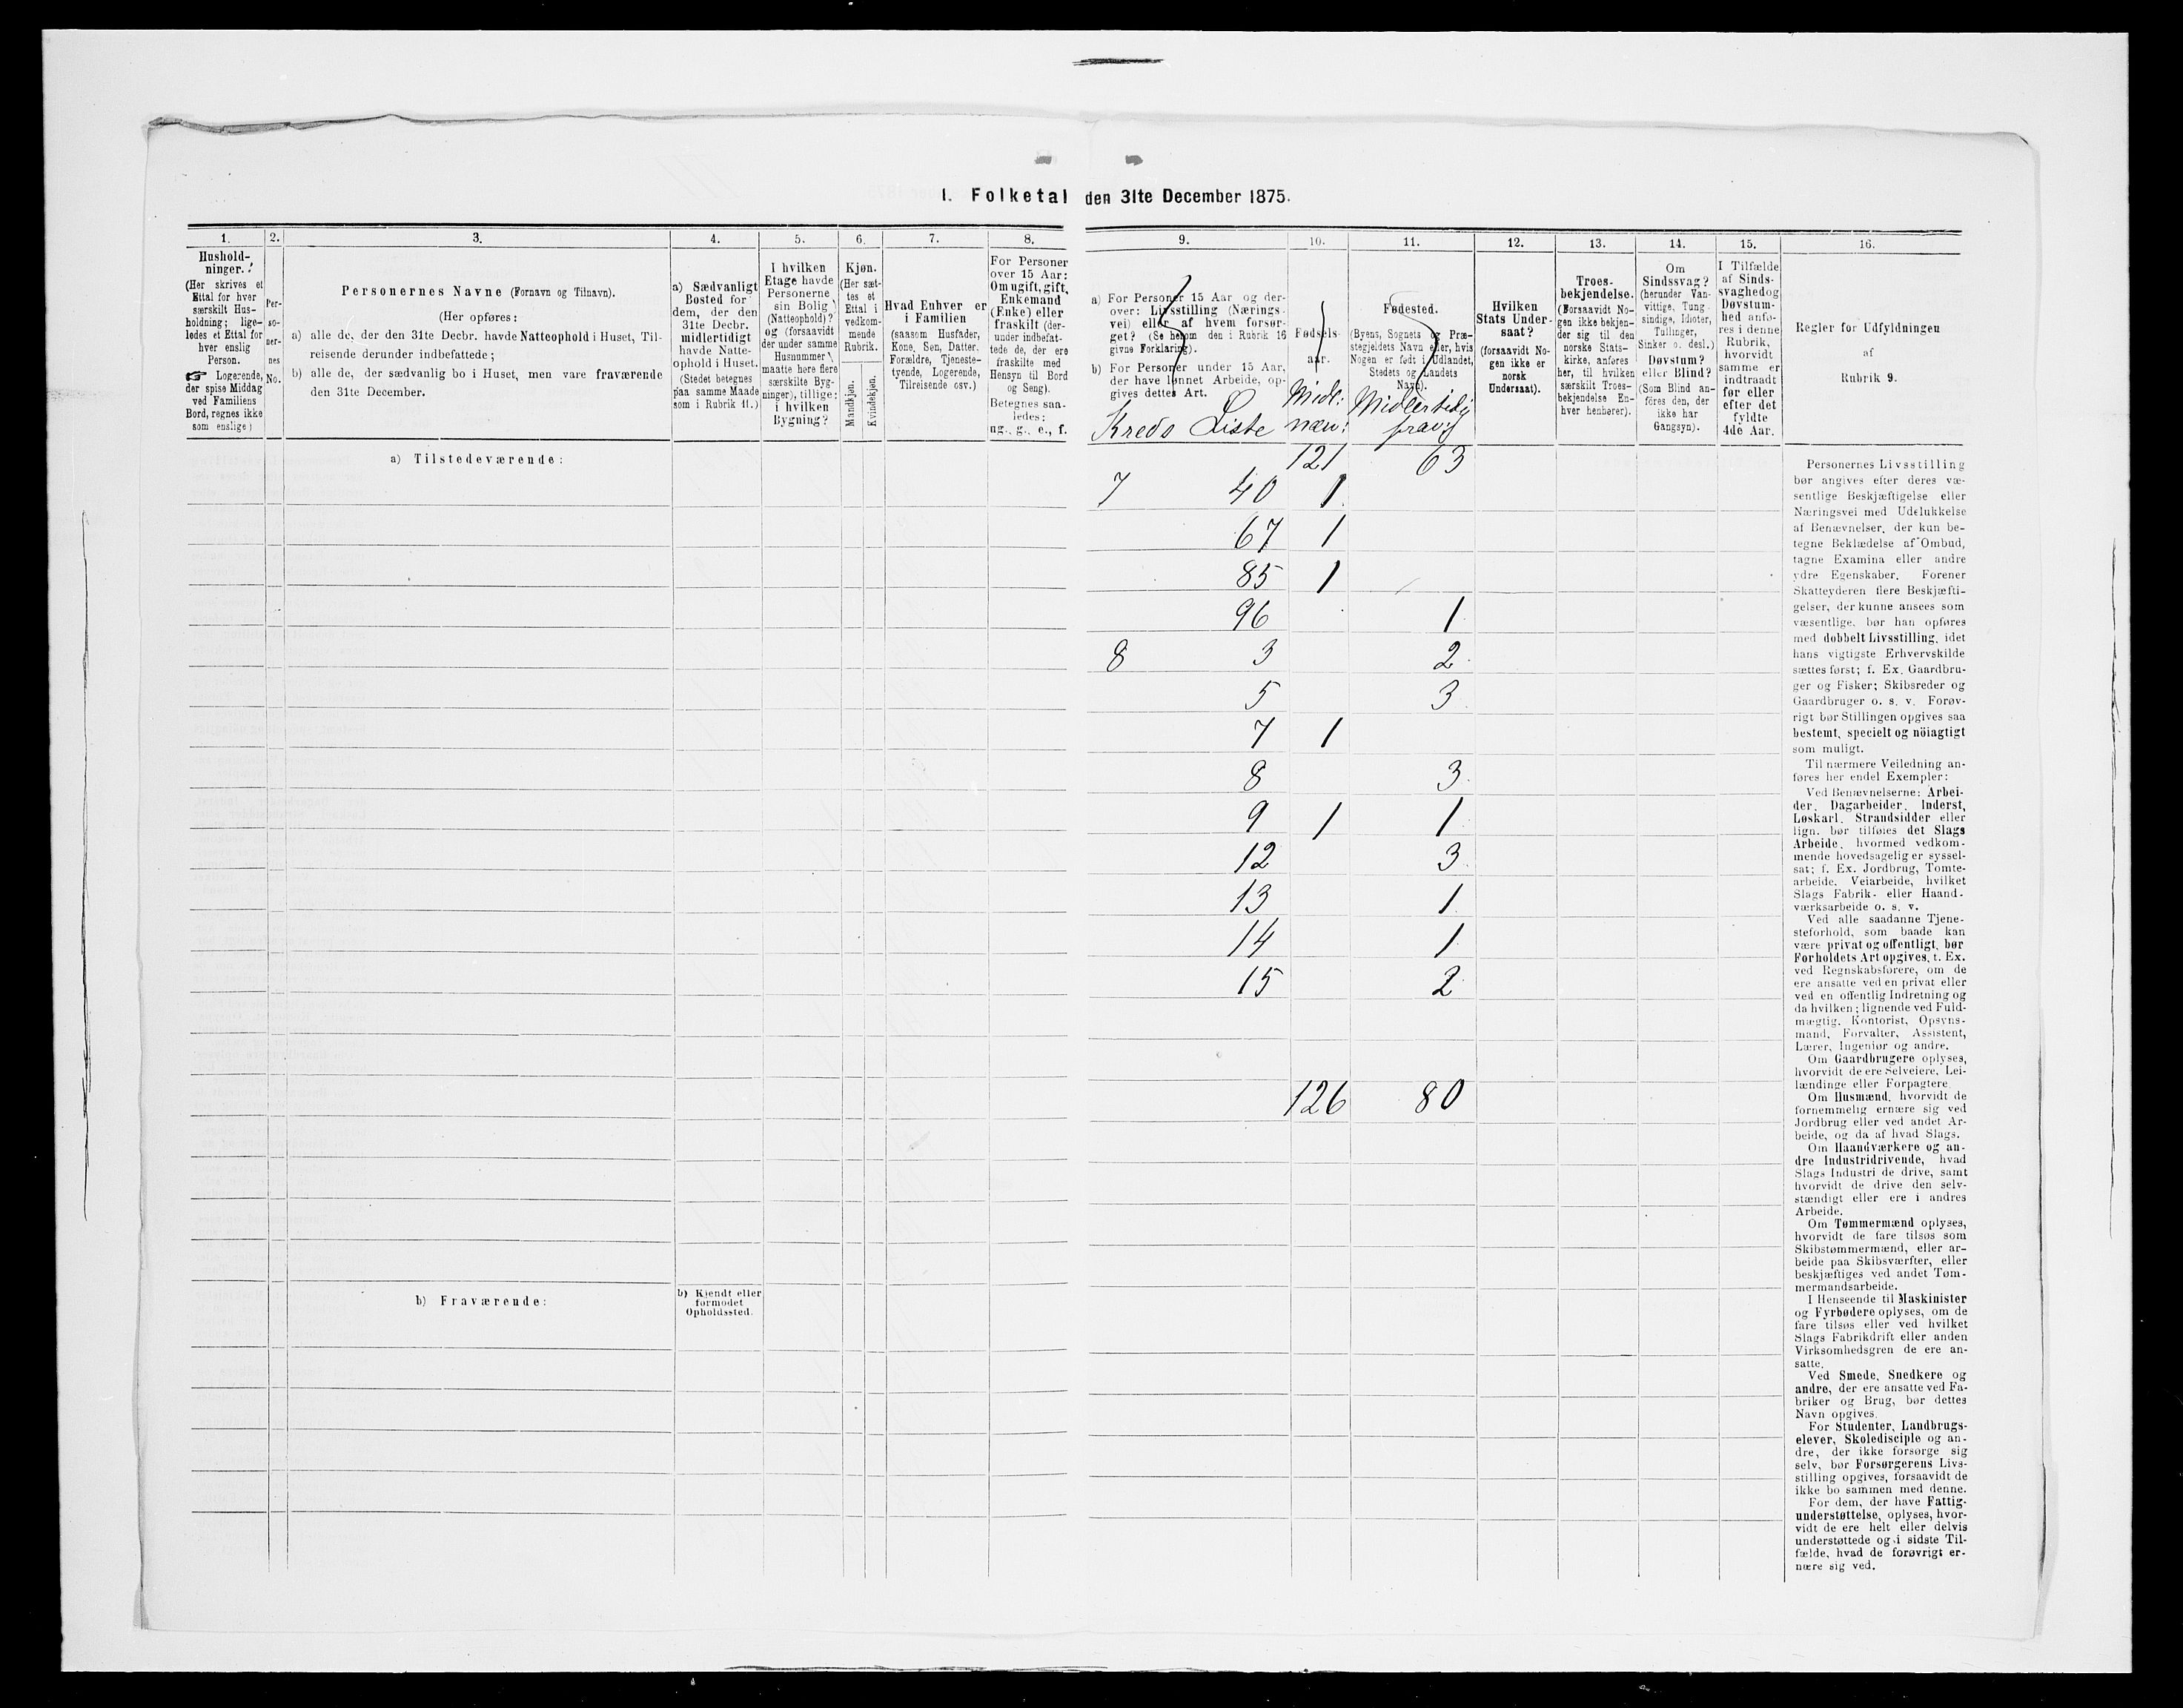 I. Folketal den 31te December 1875.
1.
Hushold-
ninger.
(Her skrives et
Ettal for hver
særskilt Hus-
holdning; lige-
ledes et Ettal for
hver enslig
Person.
☞ Logerende,
der spise Middag
ved Familiens
Bord, regnes ikke
som enslige)
2.
Per-
so-
ner-
nes
No.
3.
Personernes Navne (Fornavn og Tilnavn).
(Her opføres:
a) alle de, der den 31te Decbr. havde Natteophold i Huset, Til-
reisende derunder indbefattede;
b) alle de, der sædvanlig bo i Huset, men vare fraværende
den 31te December.
4.
a) Sædvanligt
Bosted for
dem, der den
31te Decbr.
midlertidigt
havde Natte-
ophold i Huset.
(Stedet betegnes
paa samme Maade
som i Rubrik 11.)
5.
I hvilken
Etage havde
Personerne
sin Bolig
(Natteophold)?
og (forsaavidt
der under samme
Husnummer
maatte høre flere
særskilte Byg-
ninger), tillige:
i hvilken
Bygning?
6.
Kjøn.
(Her sæt-
tes et
Ettal i
vedkom-
mende
Rubrik.
Mandkjøn.
Kvindekjøn.
7.
Hvad Enhver er
i Familien
(saasom Husfader,
Kone, Søn, Datter,
Forældre, Tjeneste-
tyende, Logerende,
Tilreisende osv.)
8.
For Personer
over 15 Aar:
Om ugift, gift,
Enkemand
(Enke) eller
fraskilt (der-
under indbefat-
tede de, der ere
fraskilte med
Hensyn til Bord
og Seng).
Betegnes saa-
ledes:
ug., g., e., f.
9.
a) For Personer 15 Aar og der-
over: Livsstilling (Nærings-
vei) eller af hvem forsør-
get? (Se herom den i Rubrik 16
givne Forklaring).
b) For Personer under 15 Aar,
der have lønnet Arbeide, op-
gives dettes Art.
Kreds Liste
10.
Fødsels-
aar.
Midl:
nærv:
11.
Fødested.
(Byens, Sognets og Præ-
stegjeldets Navn eller, hvis
Nogen er født i Udlandet,
Stedets og Landets
Navn).
Midlertidig
frav:
12.
Hvilken
Stats Under-
saat?
(forsaavidt No-
gen ikke er
norsk
Undersaat).
13.
Troes-
bekjendelse.
(Forsaavidt No-
gen ikke bekjen-
der sig til den
norske Stats-
kirke, anføres
her, til hvilken
særskilt Troes-
bekjendelse En-
hver henhører).
14.
Om
Sindssvag?
(herunder Van-
vittige, Tung-
sindige, Idioter,
Tullinger,
Sinker o. desl.)
Døvstum?
eller Blind?
(Som Blind an-
føres den, der
ikke har
Gangsyn).
15.
I Tilfælde
af Sinds-
svaghed og
Døvstum-
hed anfø-
res i denne
Rubrik,
hvorvidt
samme er
indtraadt
før eller
efter det
fyldte
4de Aar.
16.
Regler for Udfyldningen
af
Rubrik 9.
a) Tilstedeværende:
121 63
7 40 1
67 1
85 1
96 1
8 3 2
5 3
7 1
8 3
9 1 1
12 3
13 1
14 1
15 2
126 80
b) Fraværende:
b) Kjendt eller
formodet
Opholdssted.
Personernes Livsstilling
bør angives efter deres væ-
sentlige Beskjæftigelse eller
Næringsvei med Udelukkelse
af Benævnelser, der kun be-
tegne Beklædelse af Ombud,
tagne Examina eller andre
ydre Egenskaber. Forener
Skatteyderen flere Beskjæfti-
gelser, der kunne ansees som
væsentlige, bør han opføres
med dobbelt Livsstilling, idet
hans vigtigste Erhvervskilde
sættes først; f. Ex. Gaardbru-
ger og Fisker; Skibsreder og
Gaardbruger o. s. v. Forøv-
rigt bør Stillingen opgives saa
bestemt, specielt og nöiagtigt
som muligt.
Til nærmere Veiledning an-
føres her endel Exempler:
Ved Benævnelserne: Arbei-
der, Dagarbeider, Inderst,
Løskarl, Strandsidder eller
lign. bør tilføies det Slags
Arbeide, hvormed vedkom-
mende hovedsagelig er syssel-
sat; f. Ex. Jordbrug, Tomte-
arbeide, Veiarbeide, hvilket
Slags Fabrik- eller Haand-
værksarbeide o. s. v.
Ved alle saadanne Tjene-
steforhold, som baade kan
være privat og offentligt, bør
Forholdets Art opgives, t. Ex.
ved Regnskabsførere, om de
ere ansatte ved en privat eller
ved en offentlig Indretning og
da hvilken; lignende ved Fuld-
mægtig, Kontorist, Opsyns-
mand, Forvalter, Assistent,
Lærer, Ingeniør og andre.
Om Gaardbrugere oplyses,
hvorvidt de ere Selveiere, Lei-
lændinge eller Forpagtere
Om Husmænd, hvorvidt de
fornemmelig ernære sig ved
Jordbrug eller ved andet Ar-
beide, og da af hvad Slags.
Om Haandværkere og an-
dre Industridrivende, hvad
Slags Industri de drive, samt
hvorvidt de drive den selv-
stændigt eller ere i andres
Arbeide.
Om Tømmermænd oplyses,
hvorvidt de fare tilsøs som
Skibstømmermænd, eller ar-
beide paa Skibsværfter, eller
beskjæftiges ved andet Tøm-
mermandsarbeide.
I Henseende til Maskinister
og Fyrbødere oplyses, om de
fare tilsøs eller ved hvilket
Slags Fabrikdrift eller anden
Virksomhedsgren de ere an-
satte.
Ved Smede, Snedkere og
andre, der ere ansatte ved Fa-
briker og Brug, bør dettes
Navn opgives.
For Studenter, Landbrugs-
elever, Skoledisciple og an-
dre, der ikke forsørge sig
selv, bør Forsørgerens Livs-
stilling opgives, forsaavidt de
ikke bo sammen med denne.
For dem, der have Fattig-
understøttelse, oplyses, hvor-
vidt de ere helt eller delvis
understøttede og i sidste Til-
fælde, hvad de forøvrigt er-
nære sig ved.